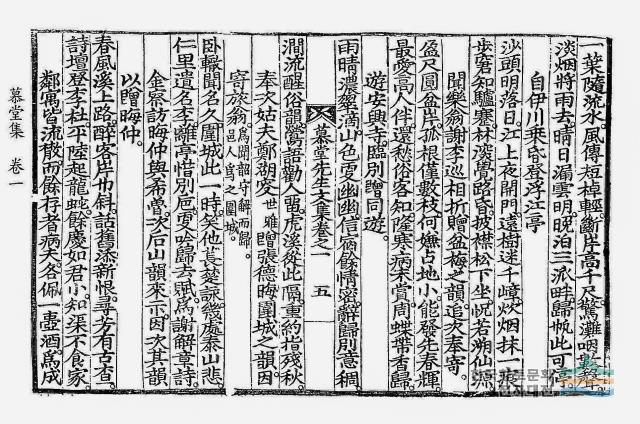 一葉隨流水風傳短棹輕斷岸高千尺驚灘咽數聲
淡烟將雨去晴日漏雲明晚泊三派畔歸帆此可停
自伊川乘昏登浮江亭
沙頭明落日江上夜開門遠樹迷千嶂炊烟抹一痕
步窘知驢蹇林深覺路昏披襟松下坐怳若溯仙源
聞樂翁謝李巡相折贈盆梅之韻追次奉寄
盈尺圓盆片孤根僅數枝何嫌占地小能發先春輝
最愛高人伴還愁俗客知隆寒病未賞周蝶帶香歸
遊安興寺臨別贈同遊
雨晴濃藥滴山色更幽幽信宿餘情密辭歸別意稠
澗流醒俗韻鶯語勸人留虎溪從此隔重約指殘秋
奉次姑夫鄭湖叟世雅贈張德晦圍城之韻因
寄旅翁
臥轅聞名久圍城此一時矣他萇楚詠幾處泰山悲
仁里遺名李離亭惜別巵更吟歸去賦爲謝解章詩
金察訪晦仲與希魯次石山韻來示因次其韻
以贈晦仲
春風溪上路醉客岸巾斜話舊添新恨尋芳有古查
詩壇登李杜平陸起龍蛇餘慶如君小知渠不食家
鄰寓皆流散而餘存者病夫各佩一壺酒爲成
慕堂先生文集卷之一 五
慕堂集 卷一